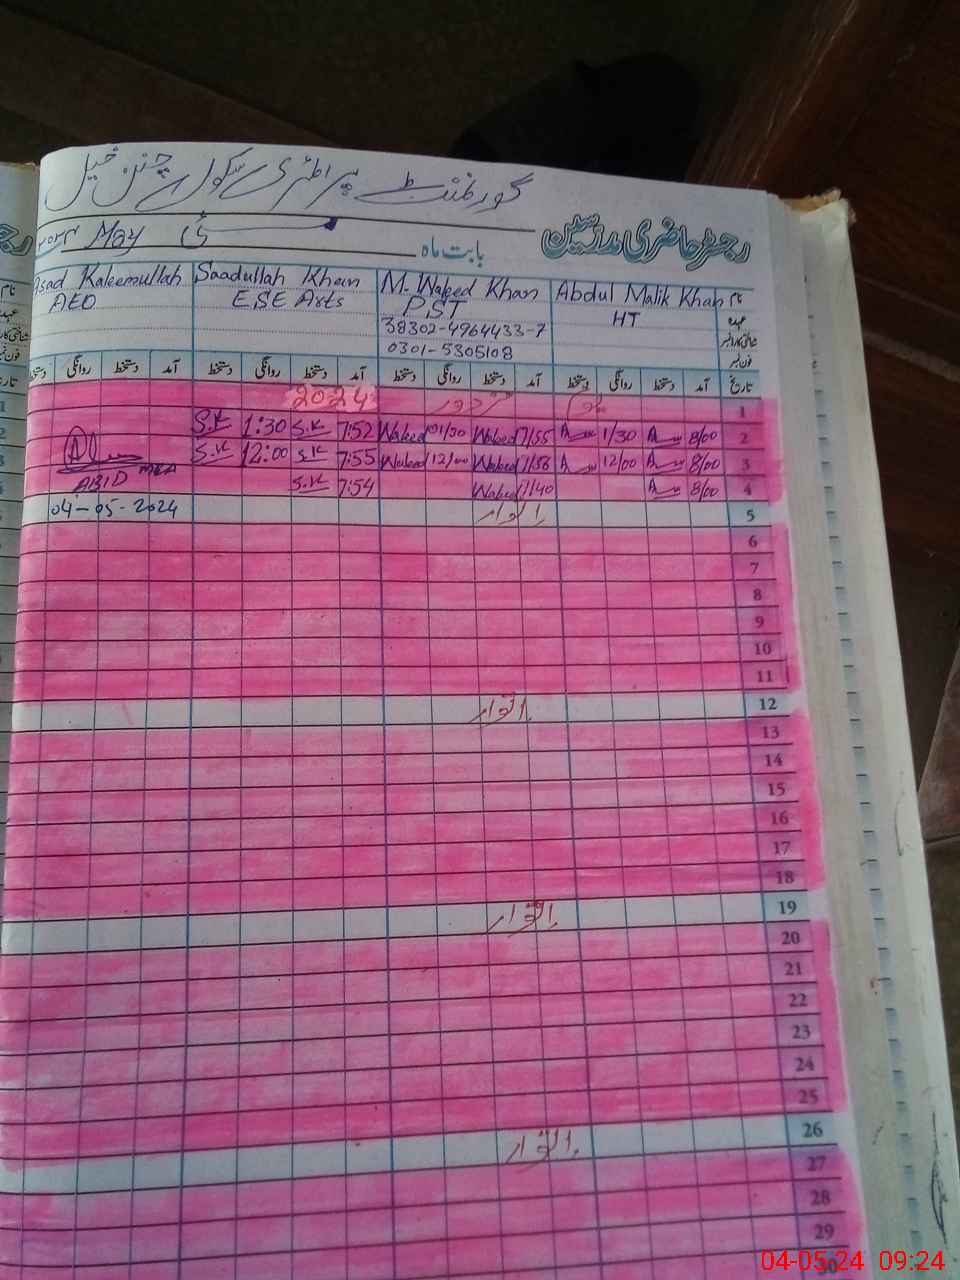 گورنمنٹ پرائمری سکول چنن خیل
رجسٹر حاضری مدرسین
بابت ماہ
مئی
May ۲۰۲۴
نام
Abdul Malik Khan
M. Waheed Khan
Saadullah Khan
Asad Kaleemullah
عہدہ
HT
PST
ESE Arts
AEO
شناختی کارڈ نمبر
38302-4964433-7
فون نمبر
0301-5305108
تاریخ آمد دستخط روانگی دستخط آمد دستخط روانگی دستخط آمد دستخط روانگی دستخط آمد دستخط روانگی دستخط
1 یوم مزدور 2024
2 8/00 1/30 7/55 Waheed 01/30 Waheed 7:52 S.K 1:30 S.K
3 8/00 12/00 7/58 Waheed 12/00 Waheed 7:55 S.K 12:00 S.K
4 8/00 7/40 Waheed 7:54 S.K
ABID MEA
04-05-2024
5 اتوار
6
7
8
9
10
11
12 اتوار
13
14
15
16
17
18
19 اتوار
20
21
22
23
24
25
26 اتوار
27
28
29
30
04-05-24 09:24